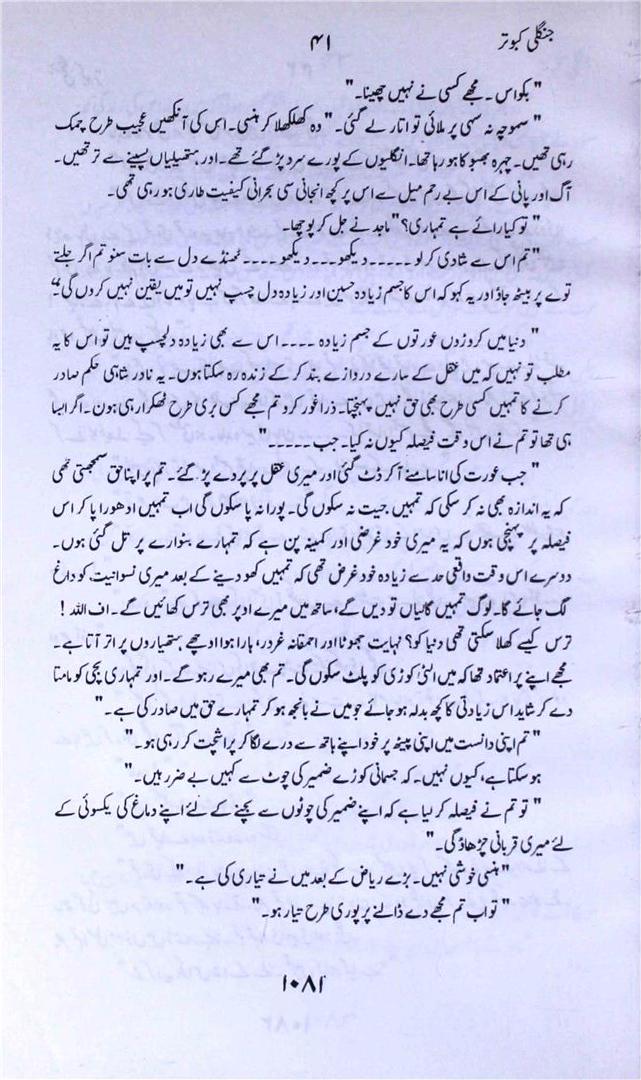 جنگلی کبوتر
۴۱
" بکواس۔ مجھے کسی نے نہیں چھینا۔"
" سموچہ نہ سہی پر ملائی تو اتار لے گئی۔ " وہ کھلکھلا کر ہنسی۔ اس کی آنکھیں عجیب طرح چمک
رہی تھیں۔ چہرہ بھبوکا ہو رہا تھا۔ انگلیوں کے پورے سرد پڑ گئے تھے۔ اور ہتھیلیاں پسینے سے تر تھیں۔
آگ اور پانی کے اس بے رحم میل سے اس پر کچھ انجانی سی بحرانی کیفیت طاری ہو رہی تھی۔
" تو کیا رائے ہے تمہاری؟" ماجد نے جل کر پوچھا۔
" تم اس سے شادی کر لو ۔۔۔۔ دیکھو ۔۔۔ دیکھو ۔۔۔۔ ٹھنڈے دل سے بات سنو تم اگر جلتے
توے پر بیٹھ جاؤ اور یہ کہو کہ اس کا جسم زیادہ حسین اور زیادہ دل چسپ نہیں تو میں یقین نہیں کروں گی"
" دنیا میں کروڑوں عورتوں کے جسم زیادہ ۔۔۔۔ اس سے بھی زیادہ دلچسپ ہیں تو اس کا یہ
مطلب تو نہیں کہ میں عقل کے سارے دروازے بند کر کے زندہ رہ سکتا ہوں۔ یہ نادر شاہی حکم صادر
کرنے کا تمہیں کسی طرح بھی حق نہیں پہنچتا۔ ذرا غور کرو تم مجھے کس بری طرح ٹھکرا رہی ہون۔ اگر ایسا
ہی تھا تو تم نے اس وقت فیصلہ کیوں نہ کیا۔ جب ۔۔۔۔۔"
" جب عورت کی انا سامنے آ کر ڈٹ گئی اور میری عقل پر پردے پڑ گئے۔ تم پر اپنا حق سمجھتی تھی
کہ یہ اندازہ بھی نہ کر سکی کہ تمہیں جیت نہ سکوں گی۔ پورا نہ پا سکوں گی اب تمہیں ادھورا پا کر اس
فیصلہ پر پہنچی ہوں کہ یہ میری خود غرضی اور کمینہ پن ہے کہ تمہارے بٹوارے پر تل گئی ہوں۔
دوسرے اس وقت واقعی حد سے زیادہ خود غرض تھی کہ تمہیں کھو دینے کے بعد میری نسوانیت کو داغ
لگ جائے گا۔ لوگ تمہیں گالیاں تو دیں گے، ساتھ میں میرے اوپر بھی ترس کھائیں گے۔ اف اللہ !
ترس کیسے کھلا سکتی تھی دنیا کو؟ نہایت جھوٹا اور احمقانہ غرور، ہارا ہوا اوچھے ہتھیاروں پر اتر آتا ہے۔
مجھے اپنے پر اعتماد تھا کہ میں الٹی کوڑی کو پلٹ سکوں گی۔ تم بھی میرے رہو گے۔ اور تمہاری بچی کو مامتا
دے کر شاید اس زیادتی کا کچھ بدلہ ہو جائے جو میں نے بانجھ ہو کر تمہارے حق میں صادر کی ہے۔"
" تم اپنی دانست میں اپنی پیٹھ پر خود اپنے ہاتھ سے درے لگا کر پراشچت کر رہی ہو۔"
ہو سکتا ہے، کیوں نہیں۔ کہ جسمانی کوڑے ضمیر کی چوٹ سے کہیں بے ضرر ہیں۔"
" تو تم نے فیصلہ کر لیا ہے کہ اپنے ضمیر کی چوٹوں سے بچنے کے لئے اپنے دماغ کی یکسوئی کے
لئے میری قربانی چڑھاؤ گی۔"
" ہنسی خوشی نہیں۔ بڑے ریاض کے بعد میں نے تیاری کی ہے۔"
" تو اب تم مجھے دے ڈالنے پر پوری طرح تیار ہو۔"
۱۰۸۱